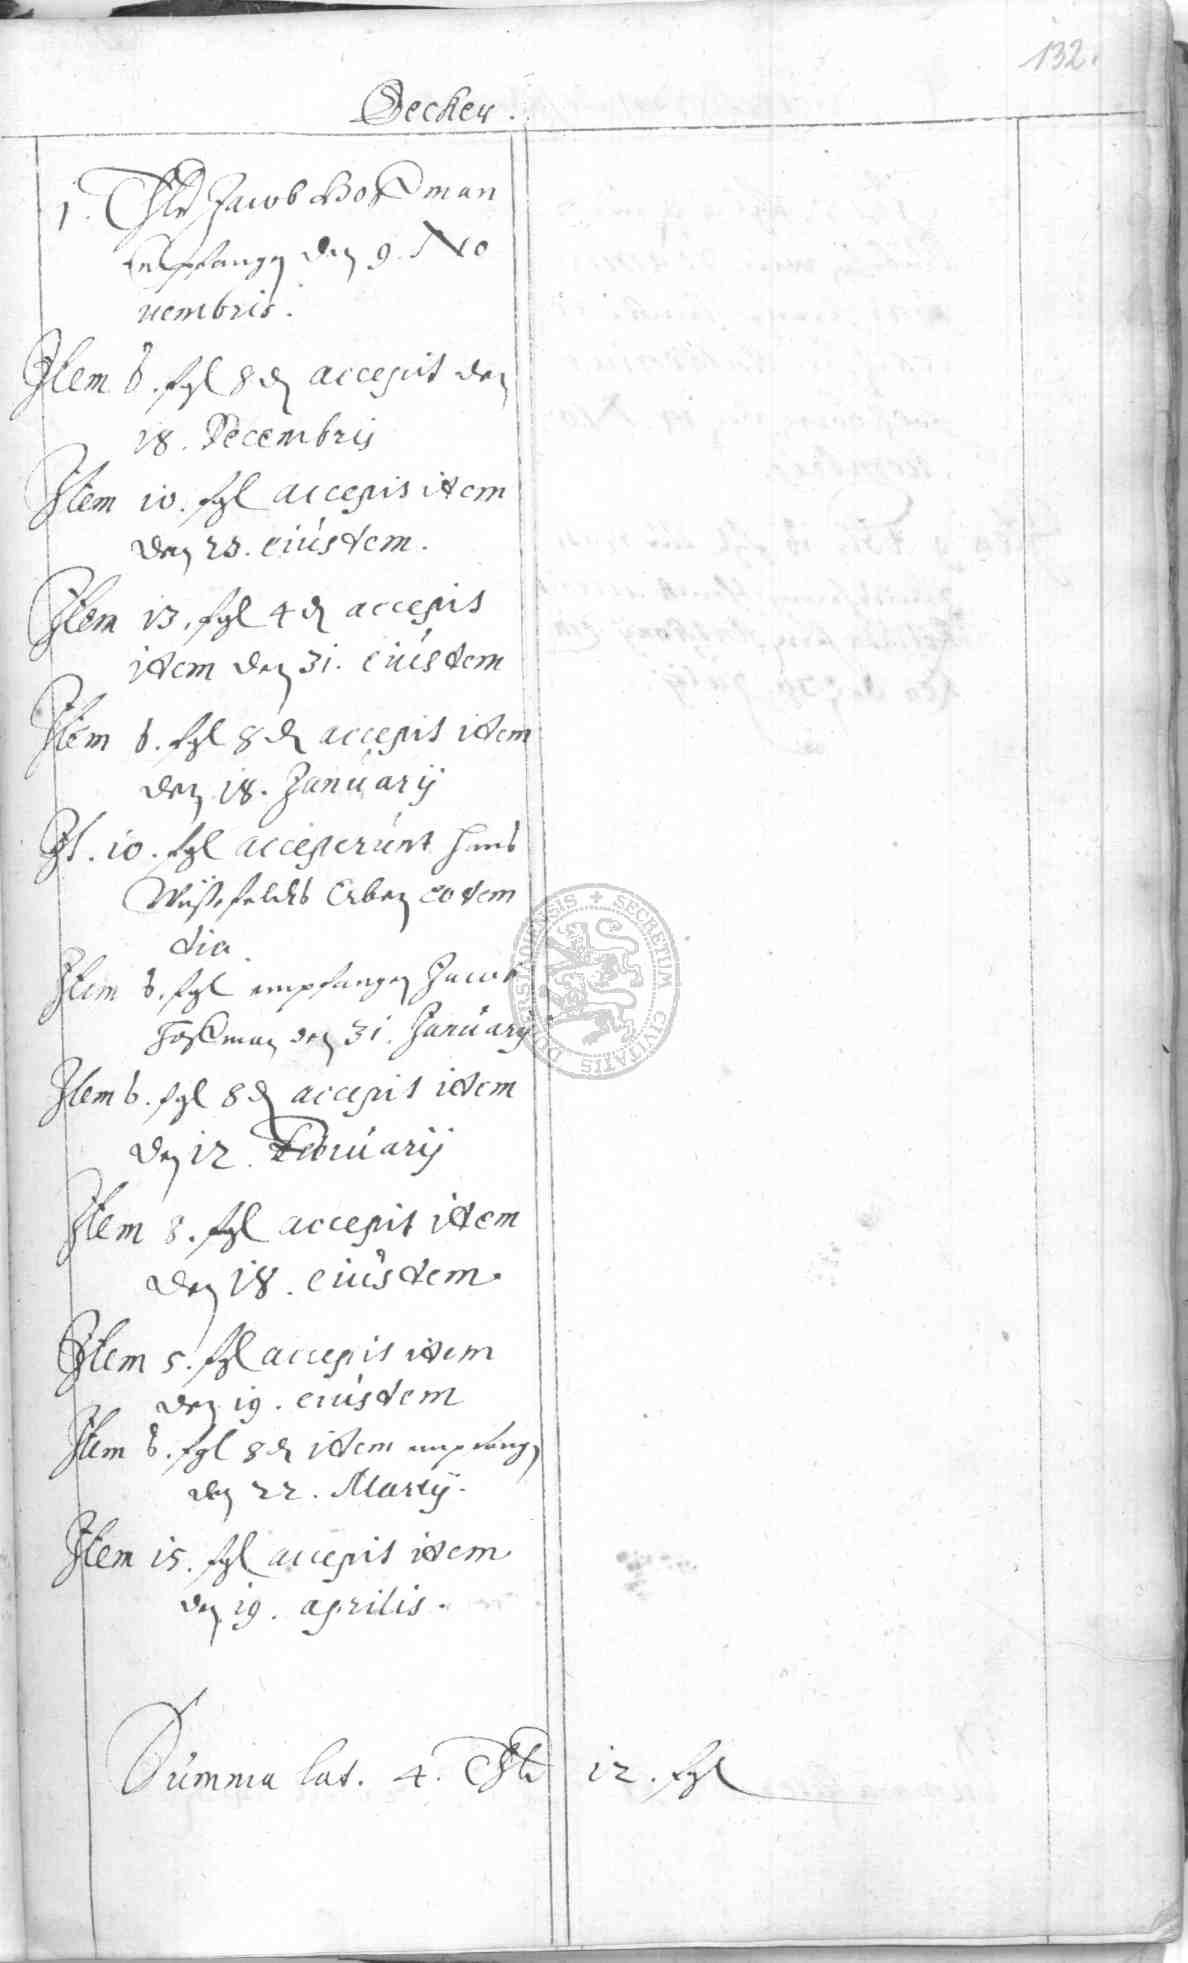 132.
Becker.
1. Thlr Jacob Hoffman
Empfangen den 9. No
uembris.
Item 6. sgl 8 d accepit den
18. Decembris
Item 10. sgl accepit idem
den 23. eiusdem.
Item 13. sgl 4 d accepit
idem den 31. eiusdem
Item 6. sgl 8 d accepit idem
den 18. Januarij
It. 10. sgl acceperunt Hans
Wüstefeldts Erben eodem
die.
Item 6. sgl empfangen Jacob
Hoffman den 31. Januarij
Item 6. sgl 8 d accepit idem
den 12. Februarij
Item 8. sgl accepit idem
den 18. eiusdem.
Item 5. sgl accepit idem
den 19. eiusdem
Item 6. sgl 8 d idem empfangen
den 22. Martij.
Item 15. sgl accepit idem
den 19. aprilis.
Summa lat. 4. Thlr 12. sgl
SECRETUM CIVITATIS